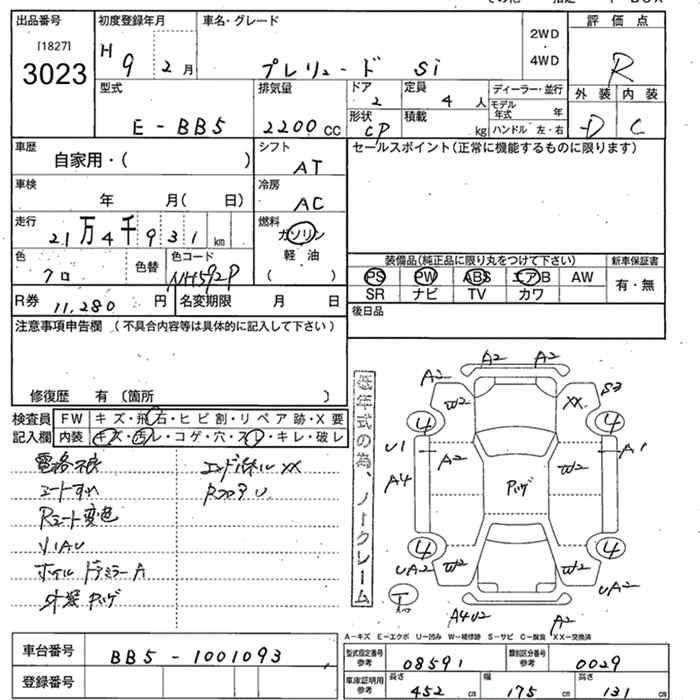 出品番号 初度登録年月 車名・グレード 2WD・4WD 評価点
[1827]
3023 H9 2月 プレリュード Si R
型式 排気量 ドア 定員 ディーラー・並行 外装 内装
E-BB5 2200cc 2 4人 モデル年式 年 D C
形状 積載 ハンドル 左・右
CP kg
車歴 シフト セールスポイント(正常に機能するものに限ります)
自家用・( ) AT
車検 冷房
年 月( 日) AC
走行 燃料
21万4千931km ガソリン
軽油
( )
色 色替 色コード
クロ NH592P
装備品(純正品に限り丸をつけて下さい) 新車保証書
PS PW ABS エアB AW 有・無
SR ナビ TV カワ
R券 11,280円 名変期限 月 日 後日品
注意事項申告欄(不具合内容等は具体的に記入して下さい)
修復歴 有〔箇所 〕
検査員記入欄
FW キズ・飛石・ヒビ割・リペア跡・X要
内装 キズ・汚レ・コゲ・穴・スレ・キレ・破レ
シートすれ
Rシート変色
ホイル ドアミラーA
低年式の為、ノークレーム
A2 A2
A2 W2 XX S3
4 4
U1 A2 W2 A1
A4
4 4
UA2 W2 W2 UA2
A4U2 A2
A-キズ E-エクボ U-凹み W-補修跡 S-サビ C-腐食 XX-交換済
車台番号 BB5-1001093
登録番号
型式指定番号 参考 08591 類別区分番号 参考 0029
車庫証明用 参考 長さ 452cm 幅 175cm 高さ 131cm